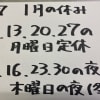 7 1月の休み
.13.20.27の
月曜日定休
.16.23.30の夜
木曜日の夜